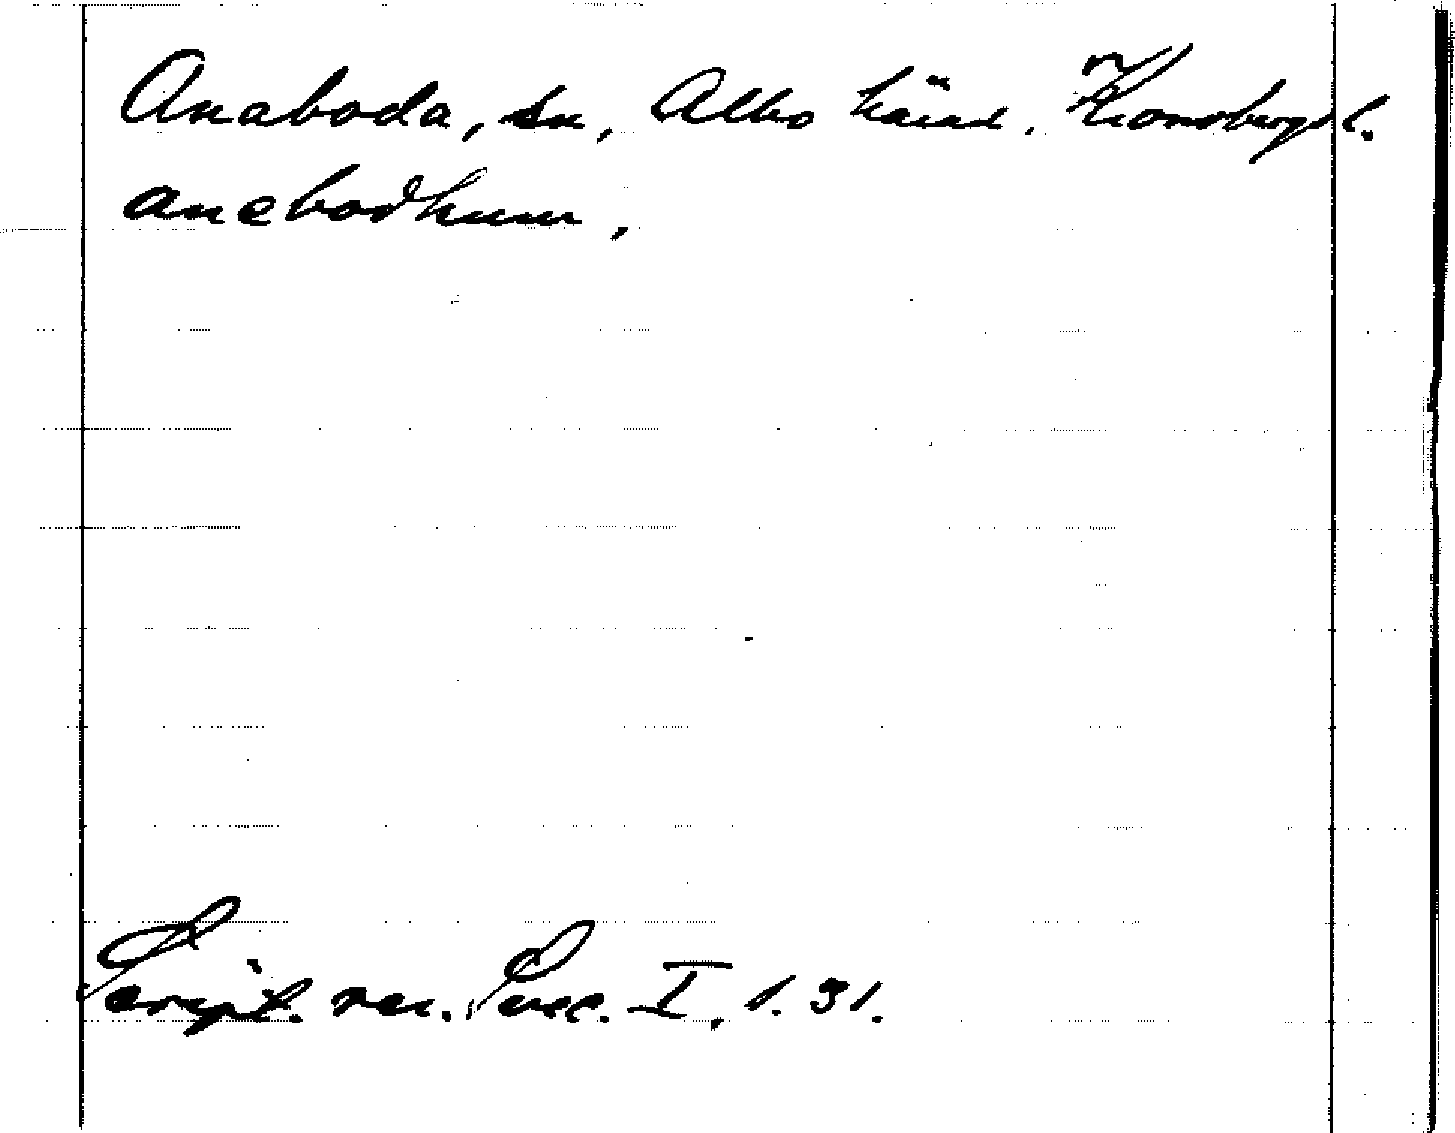 Anaboda, sn, Allbo härad. Kronobergs l.
anebodhum,
Script. rer. Svec. I, 1. 31.